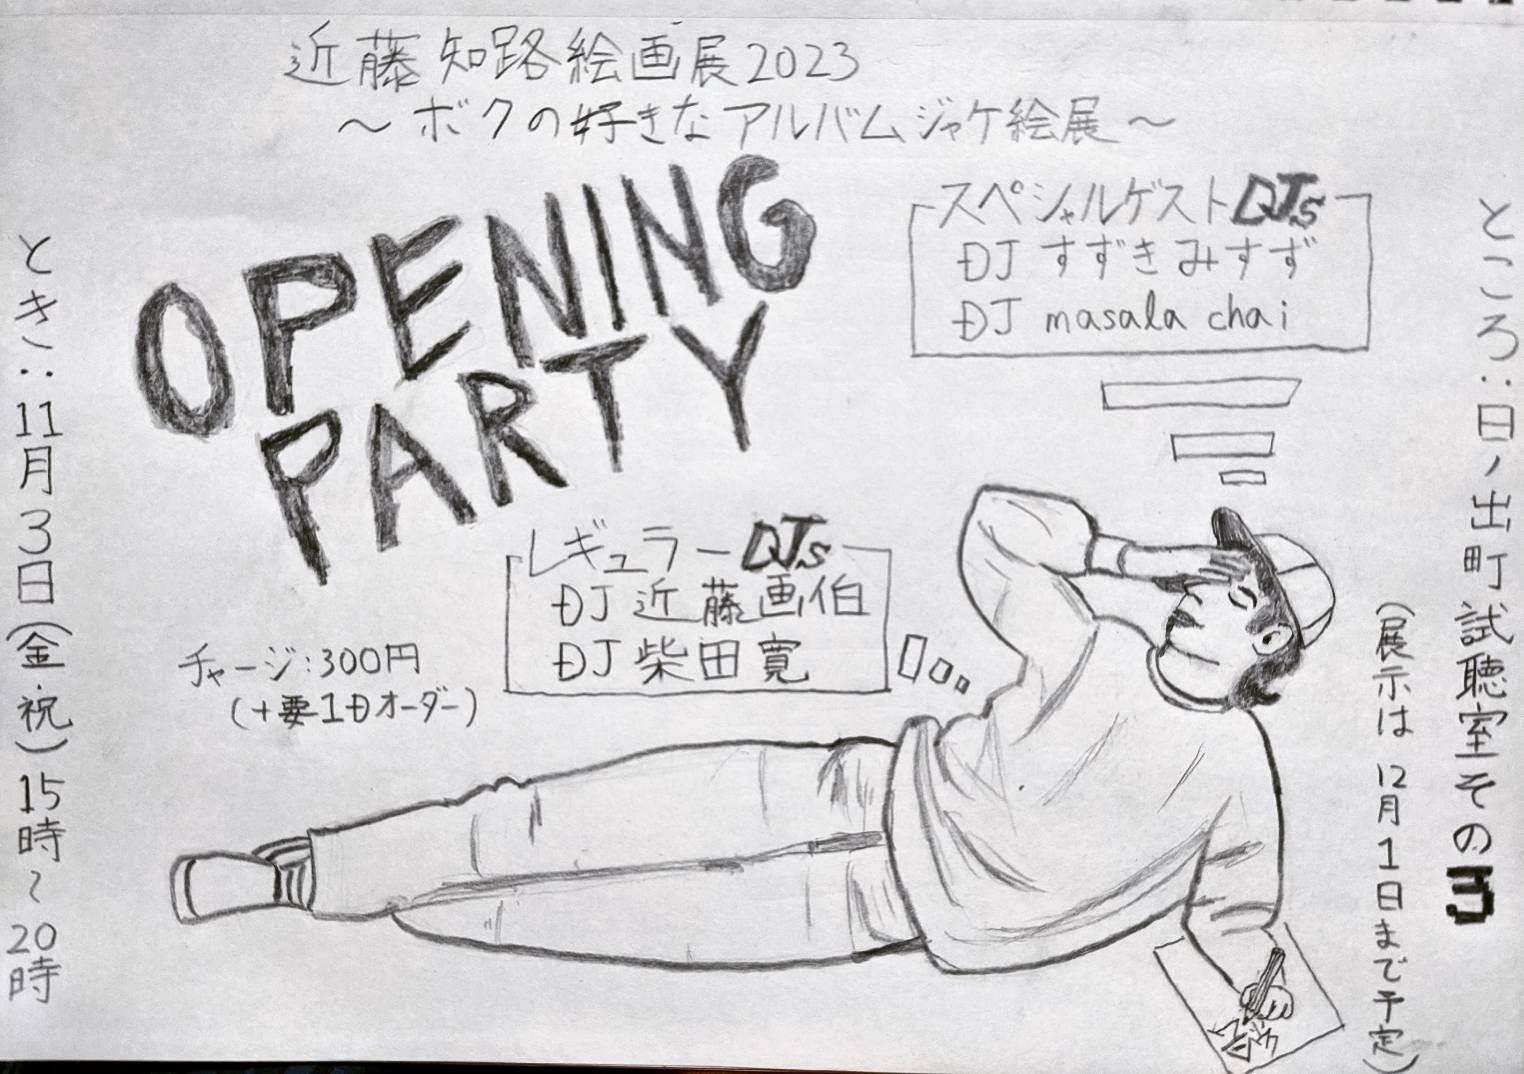 近藤知路絵画展2023
～ボクの好きなアルバムジャケ絵展～
OPENING
PARTY
スペシャルゲストDJs
DJ すずきみすず
DJ masala chai
レギュラーDJs
DJ 近藤画伯
DJ 柴田寛
チャージ:300円
(+要1Dオーダー)
とき:11月3日(金・祝)15時~20時
ところ:日ノ出町試聴室その3
(展示は12月1日まで予定)